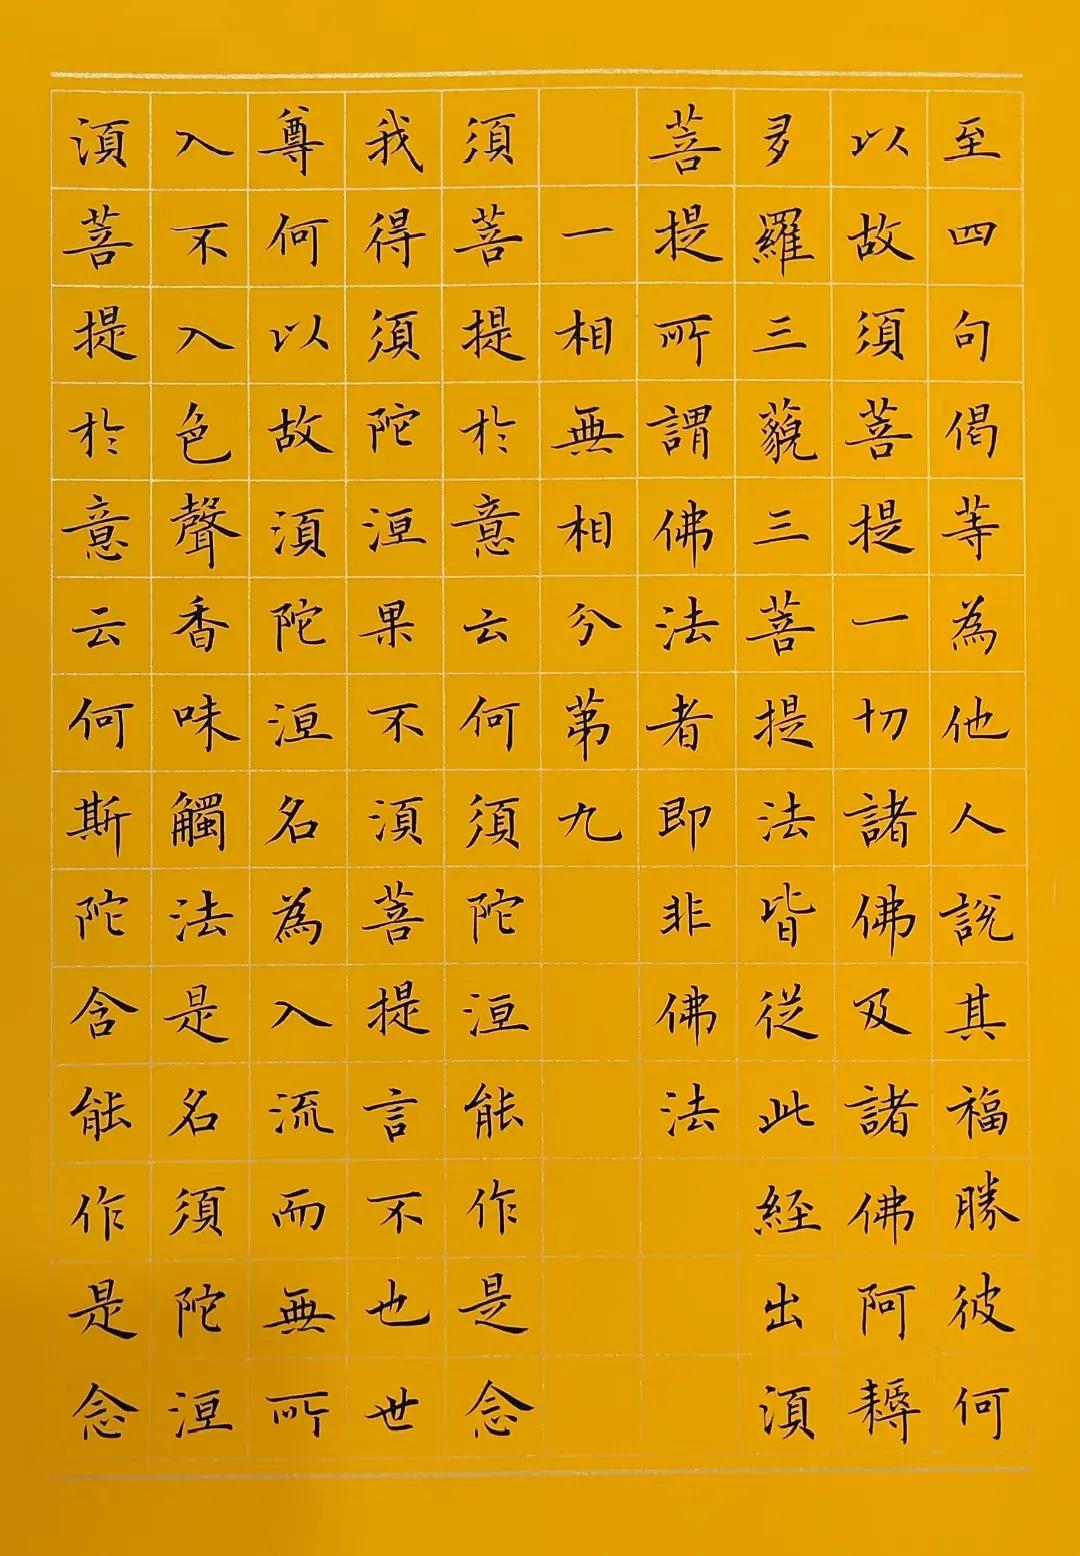 至四句偈等為他人說其福勝彼何
以故須菩提一切諸佛及諸佛阿耨
多羅三藐三菩提法皆從此經出須
菩提所謂佛法者即非佛法
一相無相分第九
須菩提於意云何須陀洹能作是念
我得須陀洹果不須菩提言不也世
尊何以故須陀洹名為入流而無所
入不入色聲香味觸法是名須陀洹
須菩提於意云何斯陀含能作是念